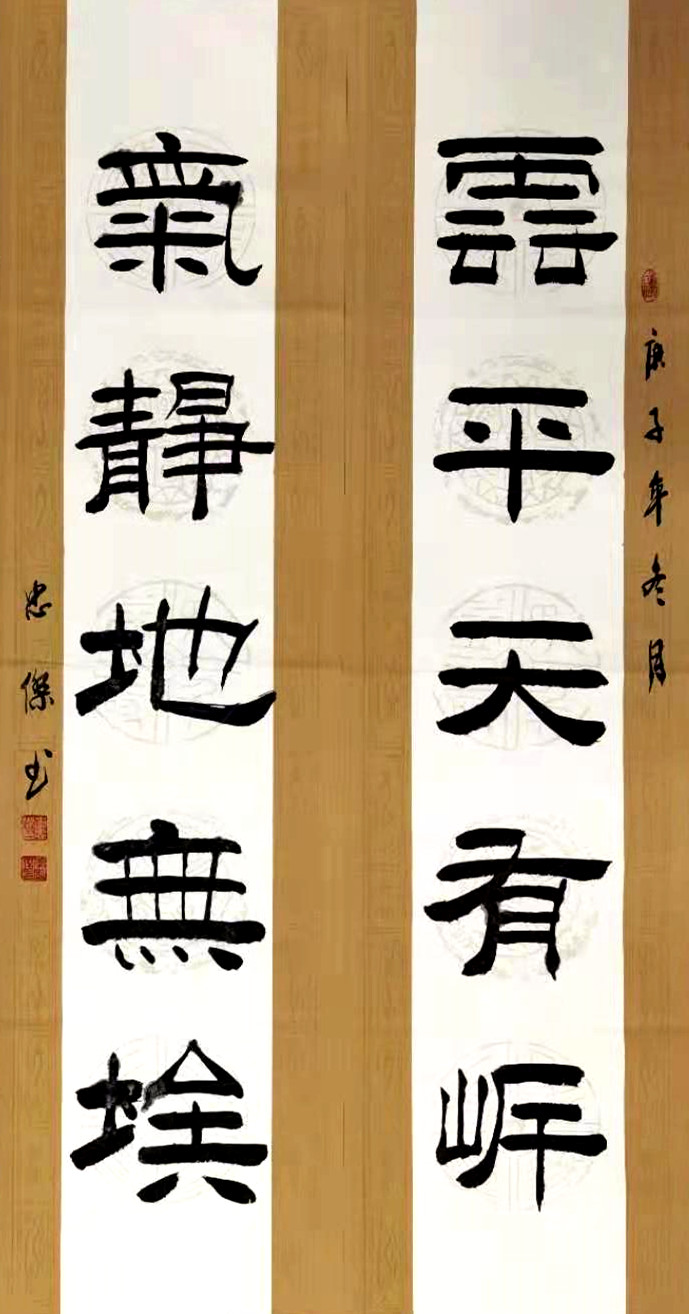 庚子年冬月
雲平天有㟁
氣靜地無埃
忠傑书